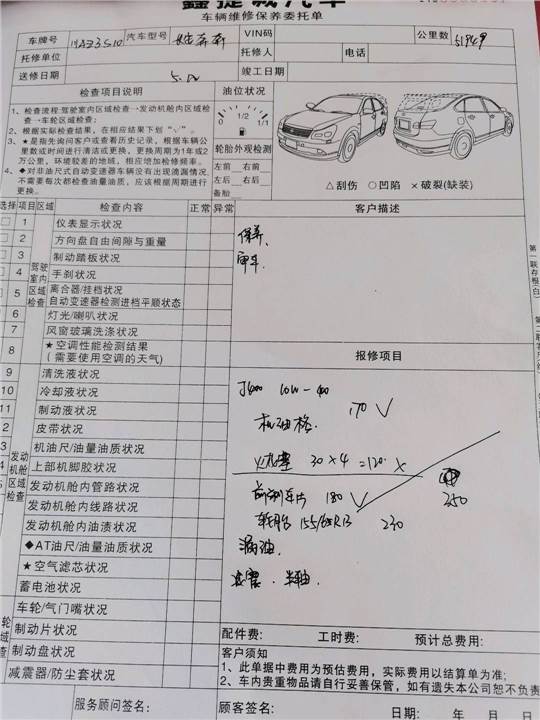 鑫捷诚汽车
车辆维修保养委托单
车牌号 汽车型号 长安奔奔 VIN码 公里数 51949
托修单位 托修人 电话
送修日期 竣工日期
检查项目说明 油位状况
1、检查流程:驾驶室内区域检查→发动机舱内区域检
查→车轮区域检查;
2、根据实际检查结果，在相应结果下划“√”。
3、★是指先询问客户或查看历史记录，根据车辆公
里数或时间进行清洁或更换，更换周期为1年或2
万公里，环境较差的地域，相应增加检修频率。
4、◆对非油尺式自动变速器车辆没有出现滴漏情况，
不需要每次都检查油量油质，应该根据周期进行
更换。
0 1/2 1/1
轮胎外观检测
左前 右前
左后 右后
备胎
△刮伤 ○凹陷 ×破裂(缺装)
选择 项目 区域 检查内容 正常 异常
驾驶室内区域检查
1 仪表显示状况
2 方向盘自由间隙与重量
3 制动踏板状况
4 手刹状况
5 离合器/挂档状况
自动变速器检测进档平顺状态
6 灯光/喇叭状况
7 风窗玻璃洗涤状况
8 ★空调性能检测结果
(需要使用空调的天气)
发动机舱区域检查
9 清洗液状况
10 冷却液状况
11 制动液状况
2 皮带状况
3 机油尺/油量油质状况
上部机脚胶状况
发动机舱内管路状况
发动机舱内线路状况
发动机舱内油渍状况
◆AT油尺/油量油质状况
★空气滤芯状况
蓄电池状况
轮区域查
车轮/气门嘴状况
制动片状况
制动盘状况
减震器/防尘套状况
客户描述
保养.
审车.
报修项目
J600 10W-40
170 √
机油格.
火花塞 30×4=120. ×
前刹车片 180 √ 350
轮胎 155/65R13 230
漏油.
半油.
配件费: 工时费: 预计总费用:
客户须知
1、此单据中费用为预估费用，实际费用以结算单为准;
2、车内贵重物品请自行妥善保管，如有遗失本公司恕不负责
服务顾问签名: 顾客签名: 日期: 年 月 日